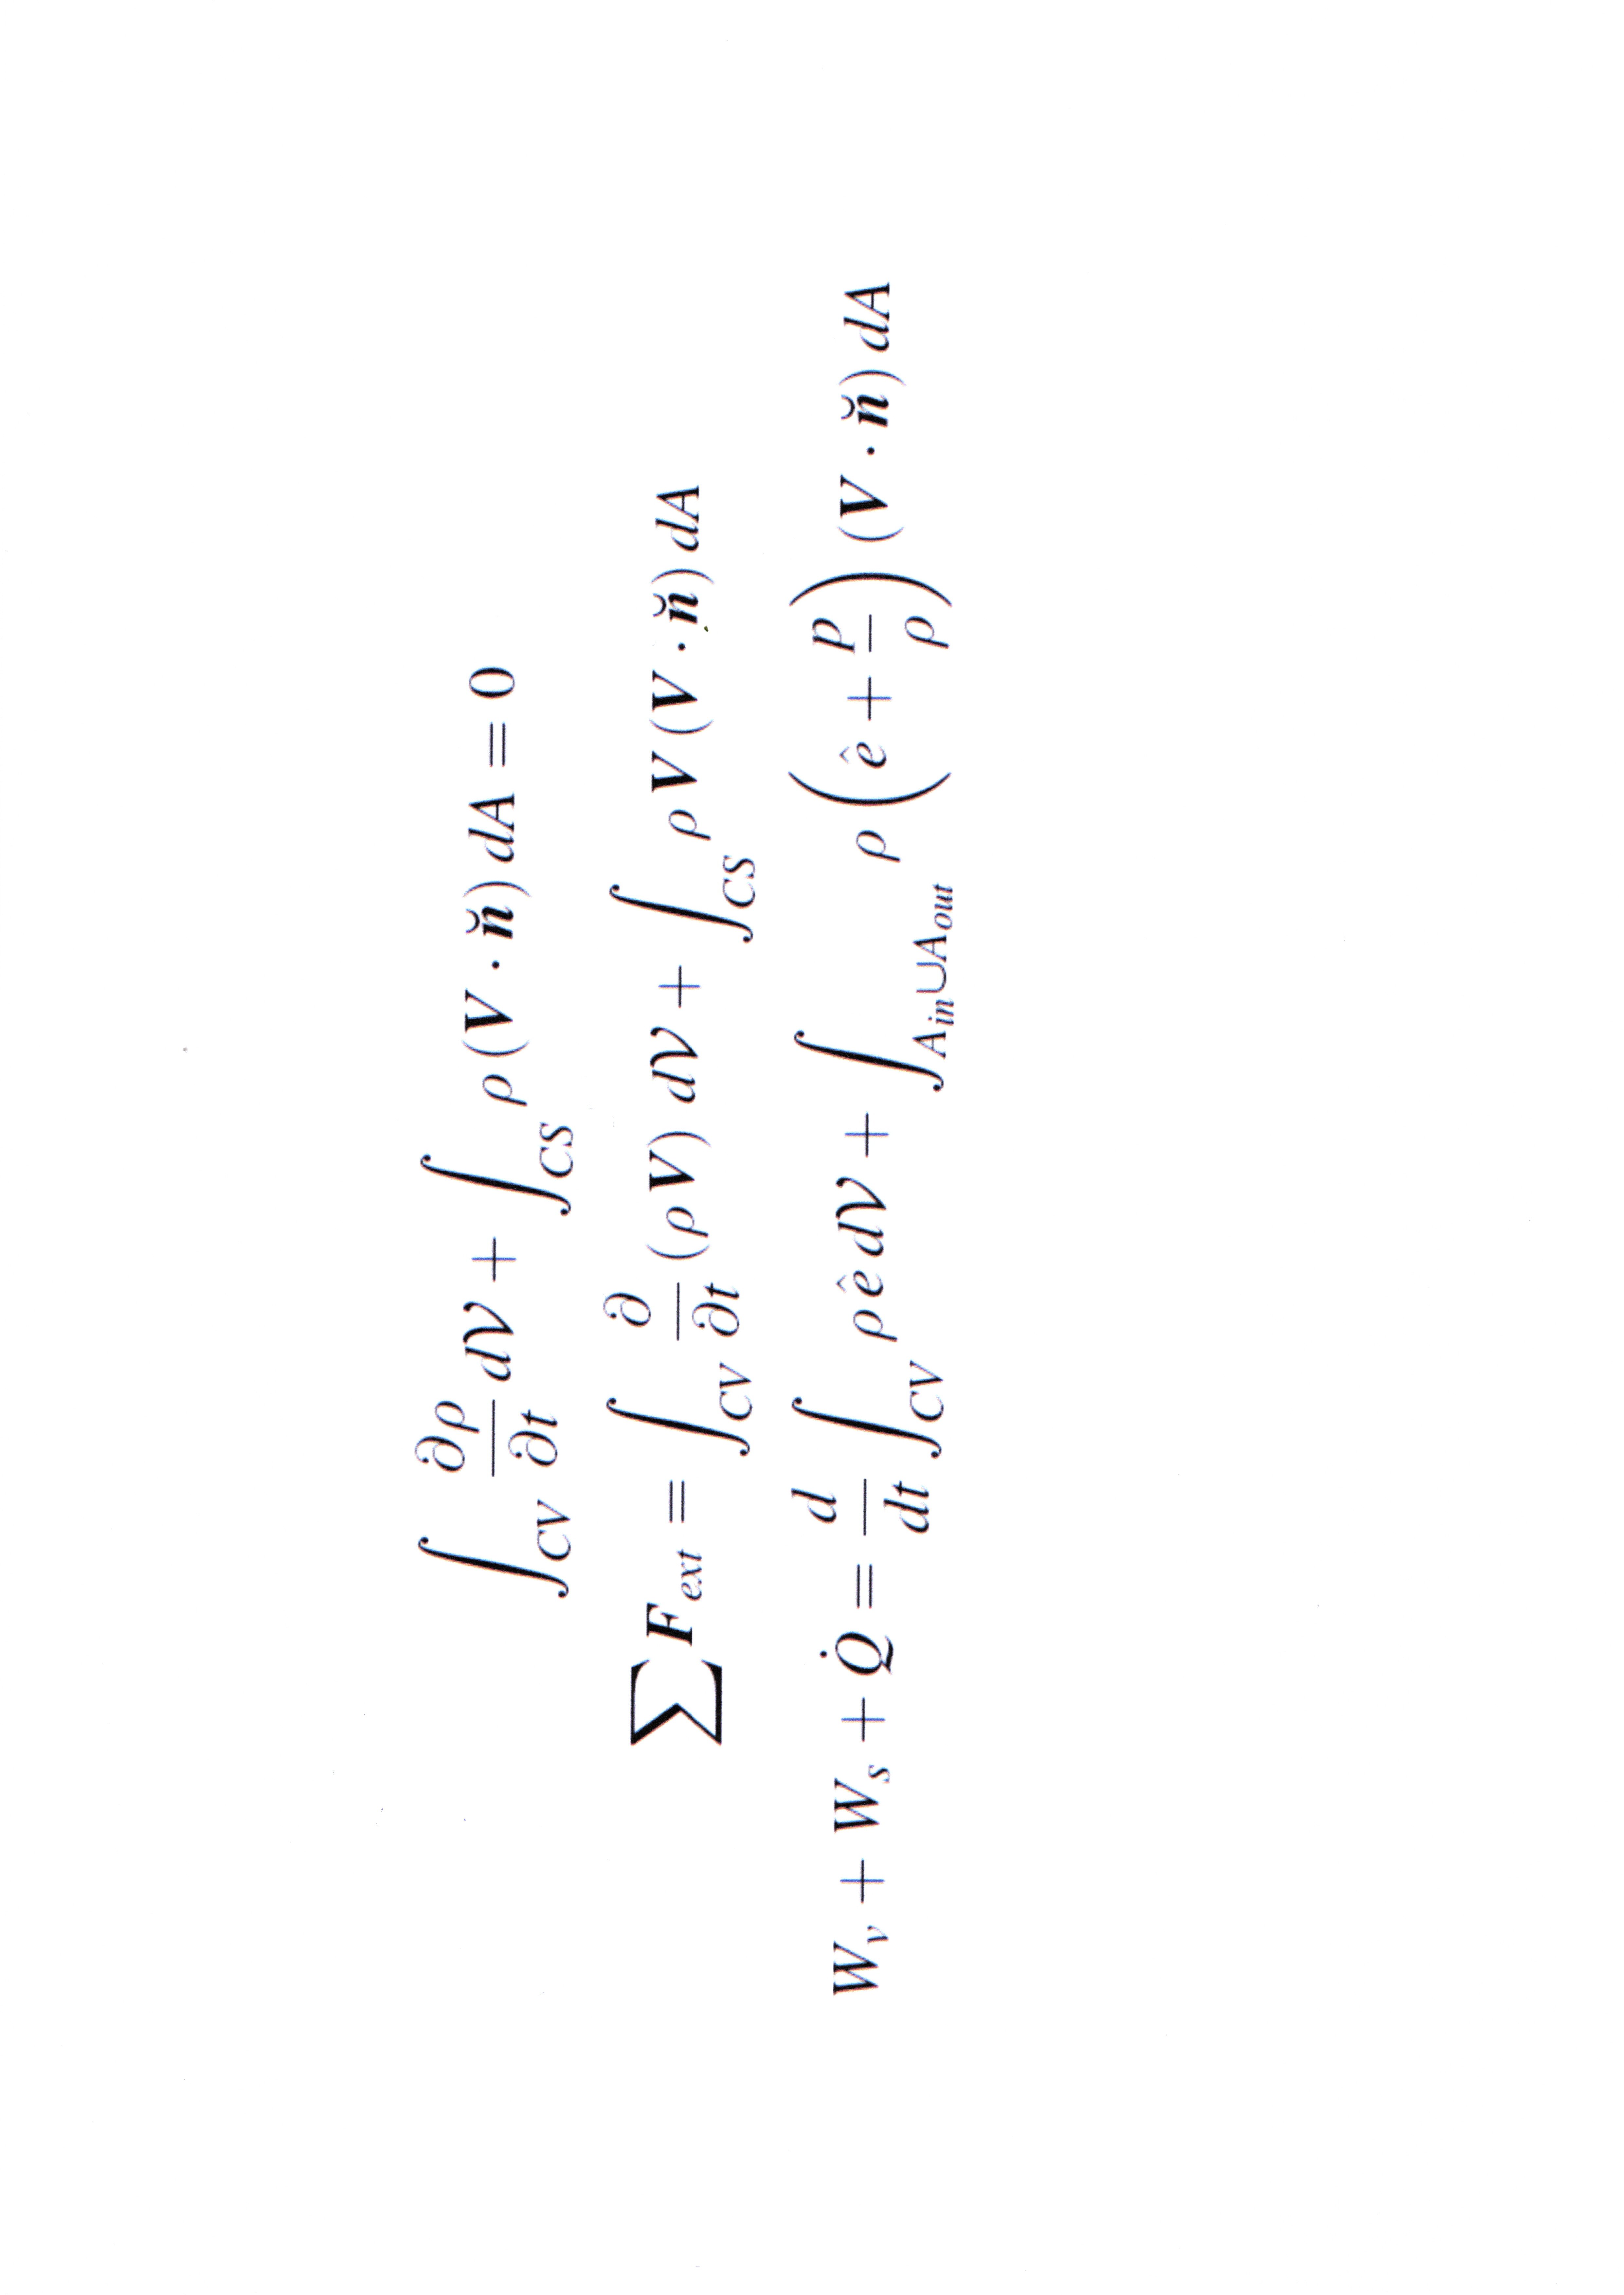 ∫_{CV} ∂ρ/∂t d𝒱 + ∫_{CS} ρ (𝑽 · 𝒏̆) dA = 0
∑ 𝑭_{ext} = ∫_{CV} ∂/∂t (ρ 𝑽) d𝒱 + ∫_{CS} ρ 𝑽 (𝑽 · 𝒏̆) dA
W_v + W_s + Q̇ = d/dt ∫_{CV} ρ ê d𝒱 + ∫_{A_{in}∪A_{out}} ρ (ê + p/ρ) (𝑽 · 𝒏̆) dA